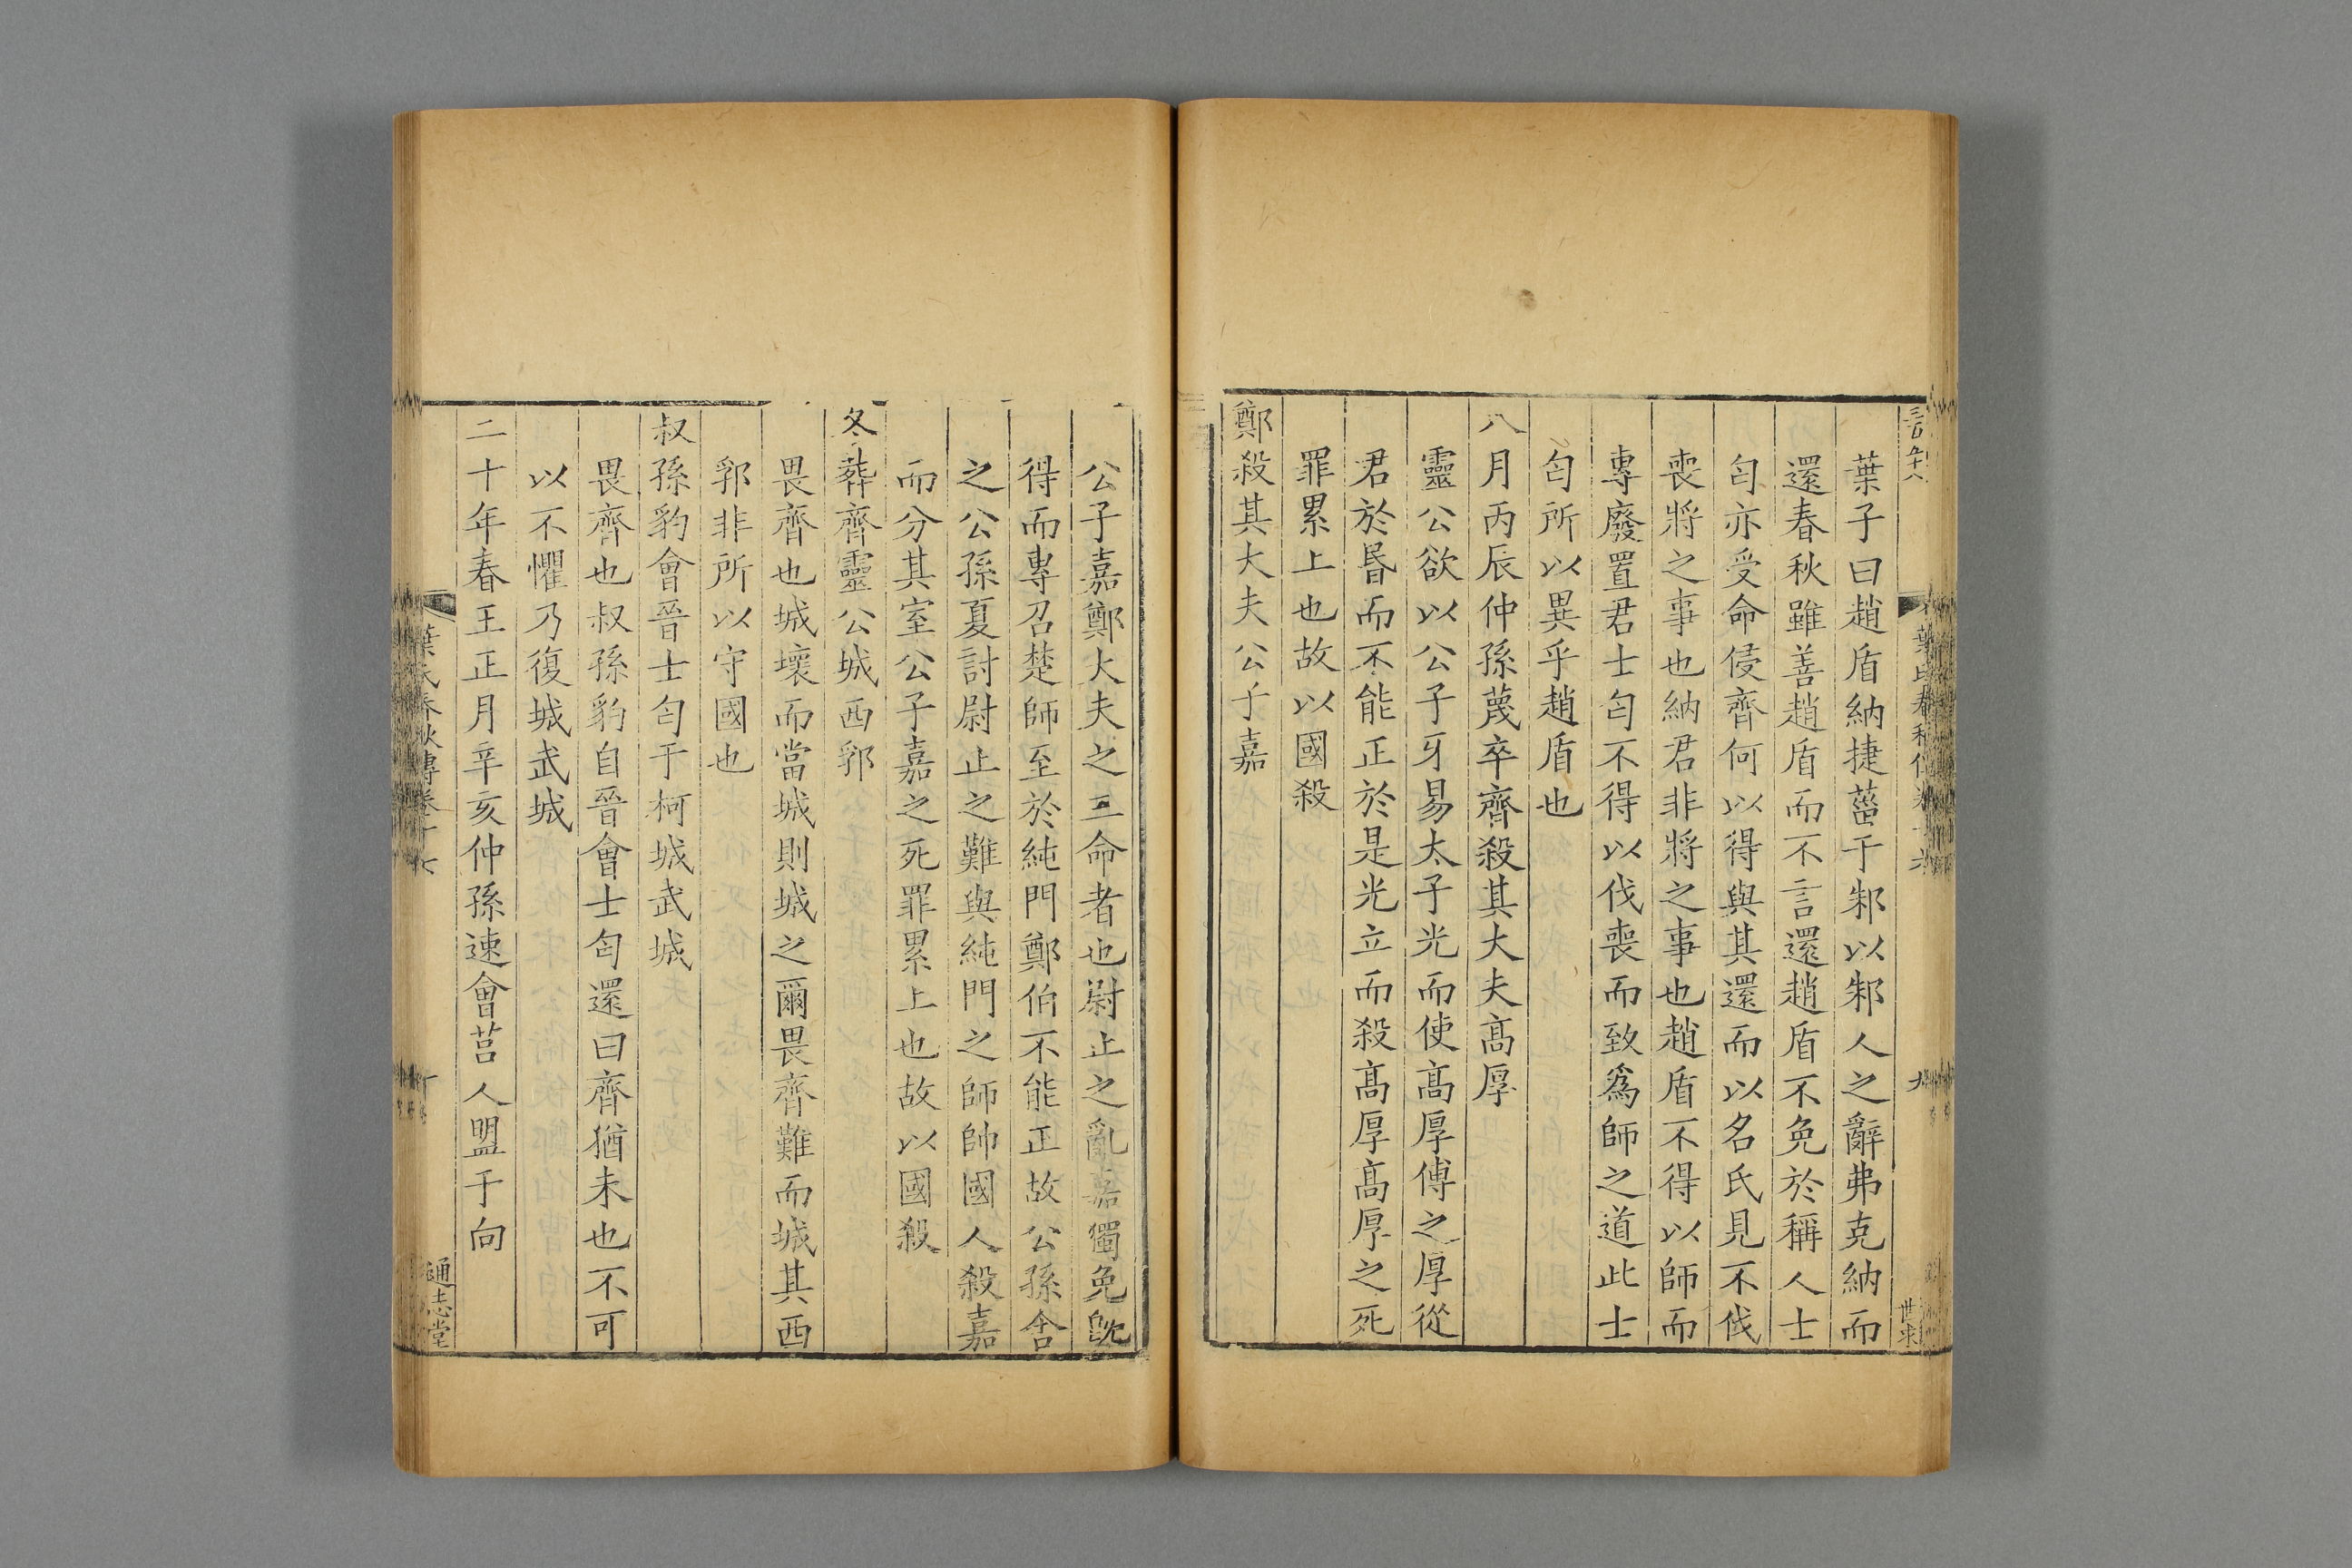 葉子曰趙盾納捷菑于邾以邾人之辭弗克納而
還春秋雖善趙盾而不言還趙盾不免於稱人士
匄亦受命侵齊何以得與其還而以名氏見不伐
喪將之事也納君非將之事也趙盾不得以師而
專廢置君士匄不得以伐喪而致爲師之道此士
匄所以異乎趙盾也
八月丙辰仲孫蔑卒齊殺其大夫髙厚
靈公欲以公子牙易太子光而使髙厚傅之厚從
君於昬而不能正於是光立而殺髙厚髙厚之死
罪累上也故以國殺
鄭殺其大夫公子嘉
公子嘉鄭大夫之三命者也尉止之亂嘉獨免旣
得而專召楚師至於純門鄭伯不能正故公孫舍
之公孫夏討尉止之難與純門之師帥國人殺嘉
而分其室公子嘉之死罪累上也故以國殺
冬葬齊靈公城西郛
畏齊也城壞而當城則城之爾畏齊難而城其西
郛非所以守國也
叔孫豹會晉士匄于柯城武城
畏齊也叔孫豹自晉會士匄還曰齊猶未也不可
以不懼乃復城武城
二十年春王正月辛亥仲孫速會莒人盟于向
葉氏春秋傳卷十七
通志堂